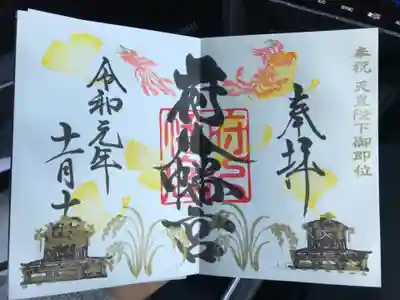 奉祝 天皇陛下御即位
奉拝
府八幡宮
令和元年
十一月十